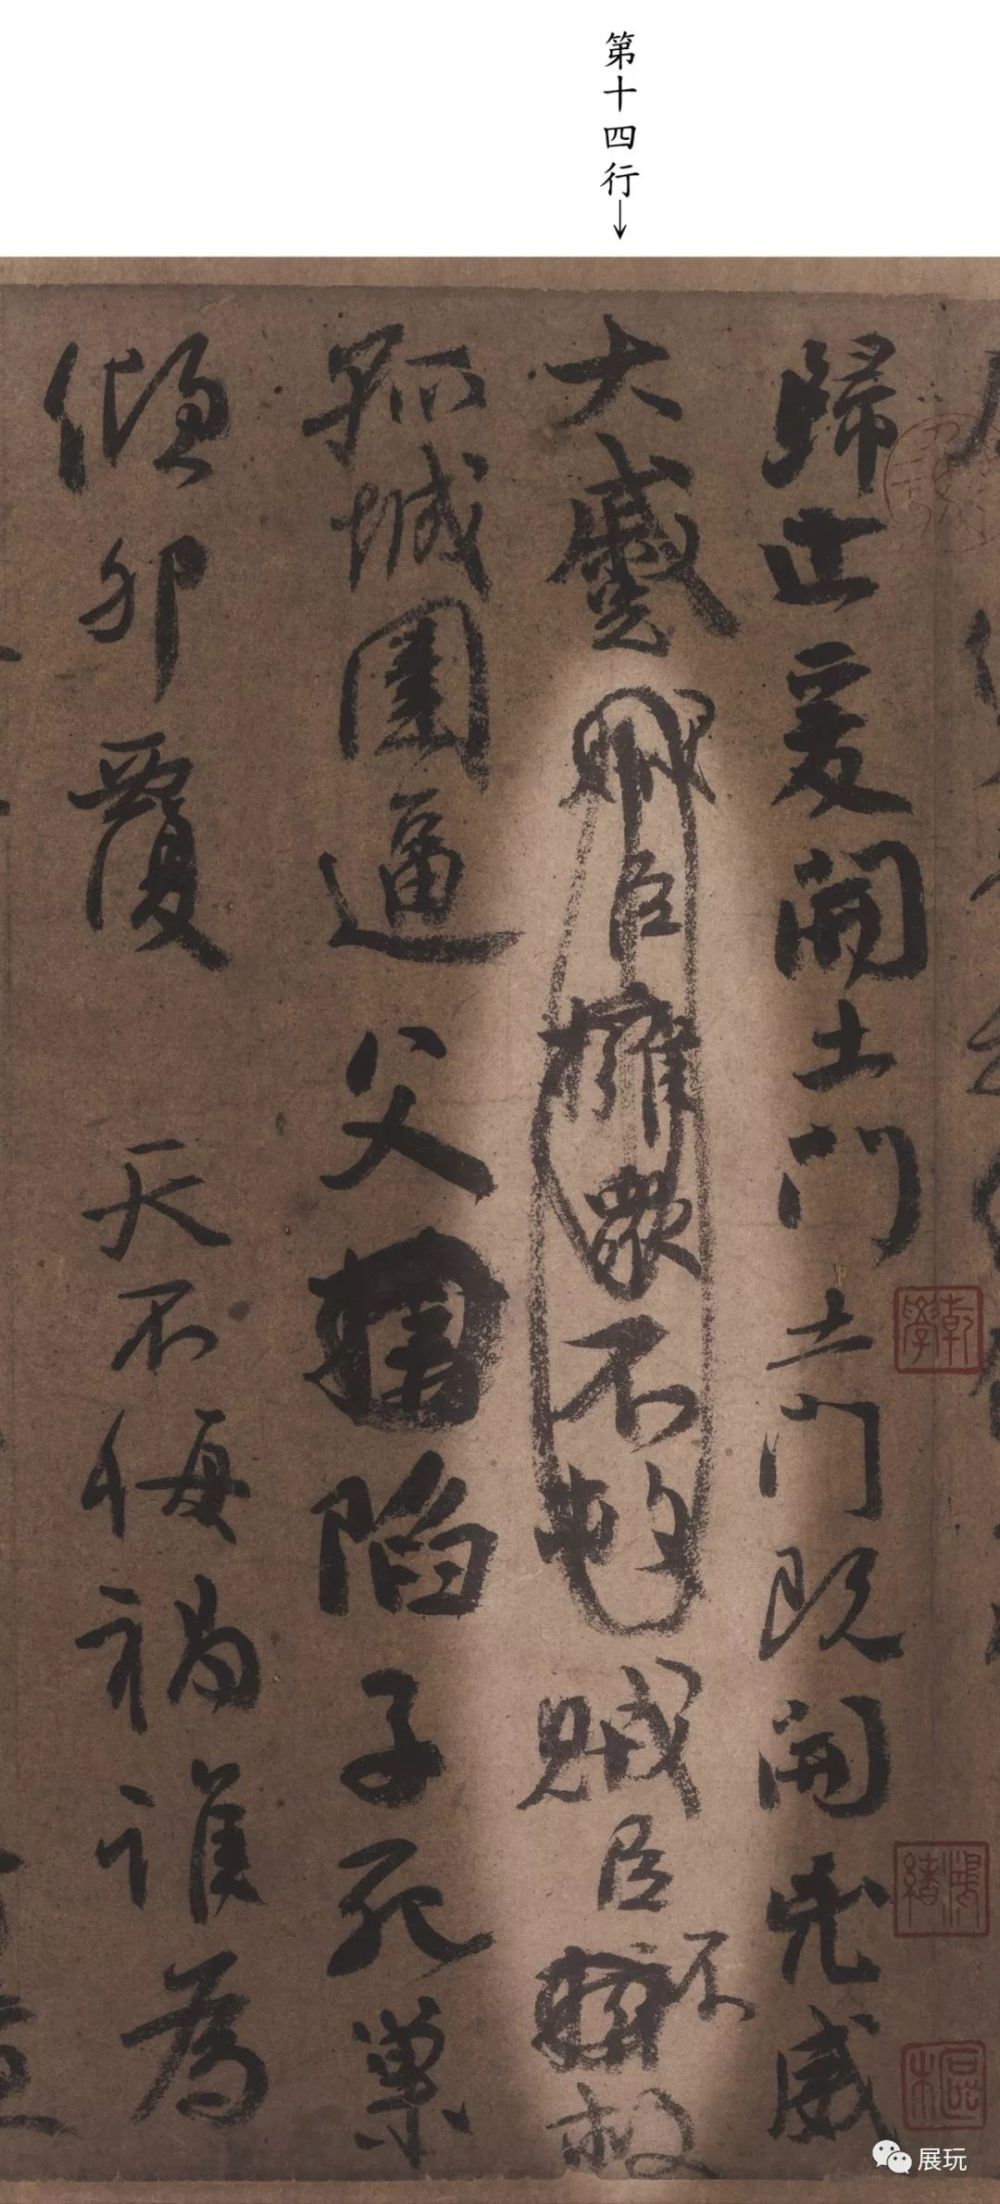 第十四行
歸止爰開土門土門既開凶威
大蹙賊臣擁眾不救賊臣不救
孤城圍逼父陷子死巢
傾卵覆天不悔禍誰為
乾學
鴻緒
樞
展玩